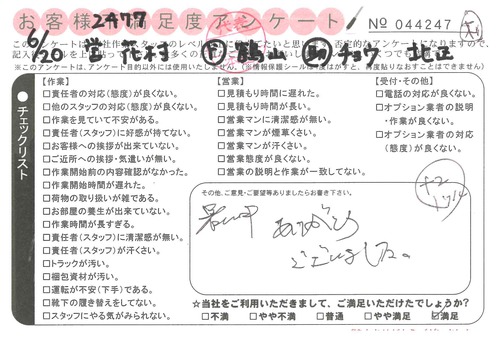 お客様満足度アンケート
2477
№ 044247
6/20 営 花村 鶴山 チョウ
チェックリスト
【作業】
□責任者の対応(態度)が良くない。
□他のスタッフの対応(態度)が良くない。
□作業を見ていて不安がある。
□責任者(スタッフ)に好感が持てない。
□お客様への挨拶が出来ていない。
□ご近所への挨拶・気遣いが無い。
□作業開始前の内容確認がなかった。
□作業開始時間が遅れた。
□荷物の取り扱いが雑である。
□お部屋の養生が出来ていない。
□作業時間が長すぎる。
□責任者(スタッフ)に清潔感が無い。
□責任者(スタッフ)が汗くさい。
□トラックが汚い。
□梱包資材が汚い。
□運転が不安(下手)である。
□靴下の履き替えをしてない。
□スタッフにやる気がみられない。
【営業】
□見積もり時間に遅れた。
□見積もり時間が長い。
□営業マンに清潔感が無い。
□営業マンが煙草くさい。
□営業マンが汗くさい。
□営業態度が良くない。
□営業の説明と作業が一致してない。
【受付・その他】
□電話の対応が良くない。
□オプション業者の説明
・作業が良くない。
□オプション業者の対応
(態度)が良くない。
その他、ご意見・ご要望等ありましたらお書き下さい。
暑い中 ありがとう
ございました。
☆当社をご利用いただきまして、ご満足いただけたでしょうか?
□不満 □やや不満 □普通 □やや満足 ☑満足